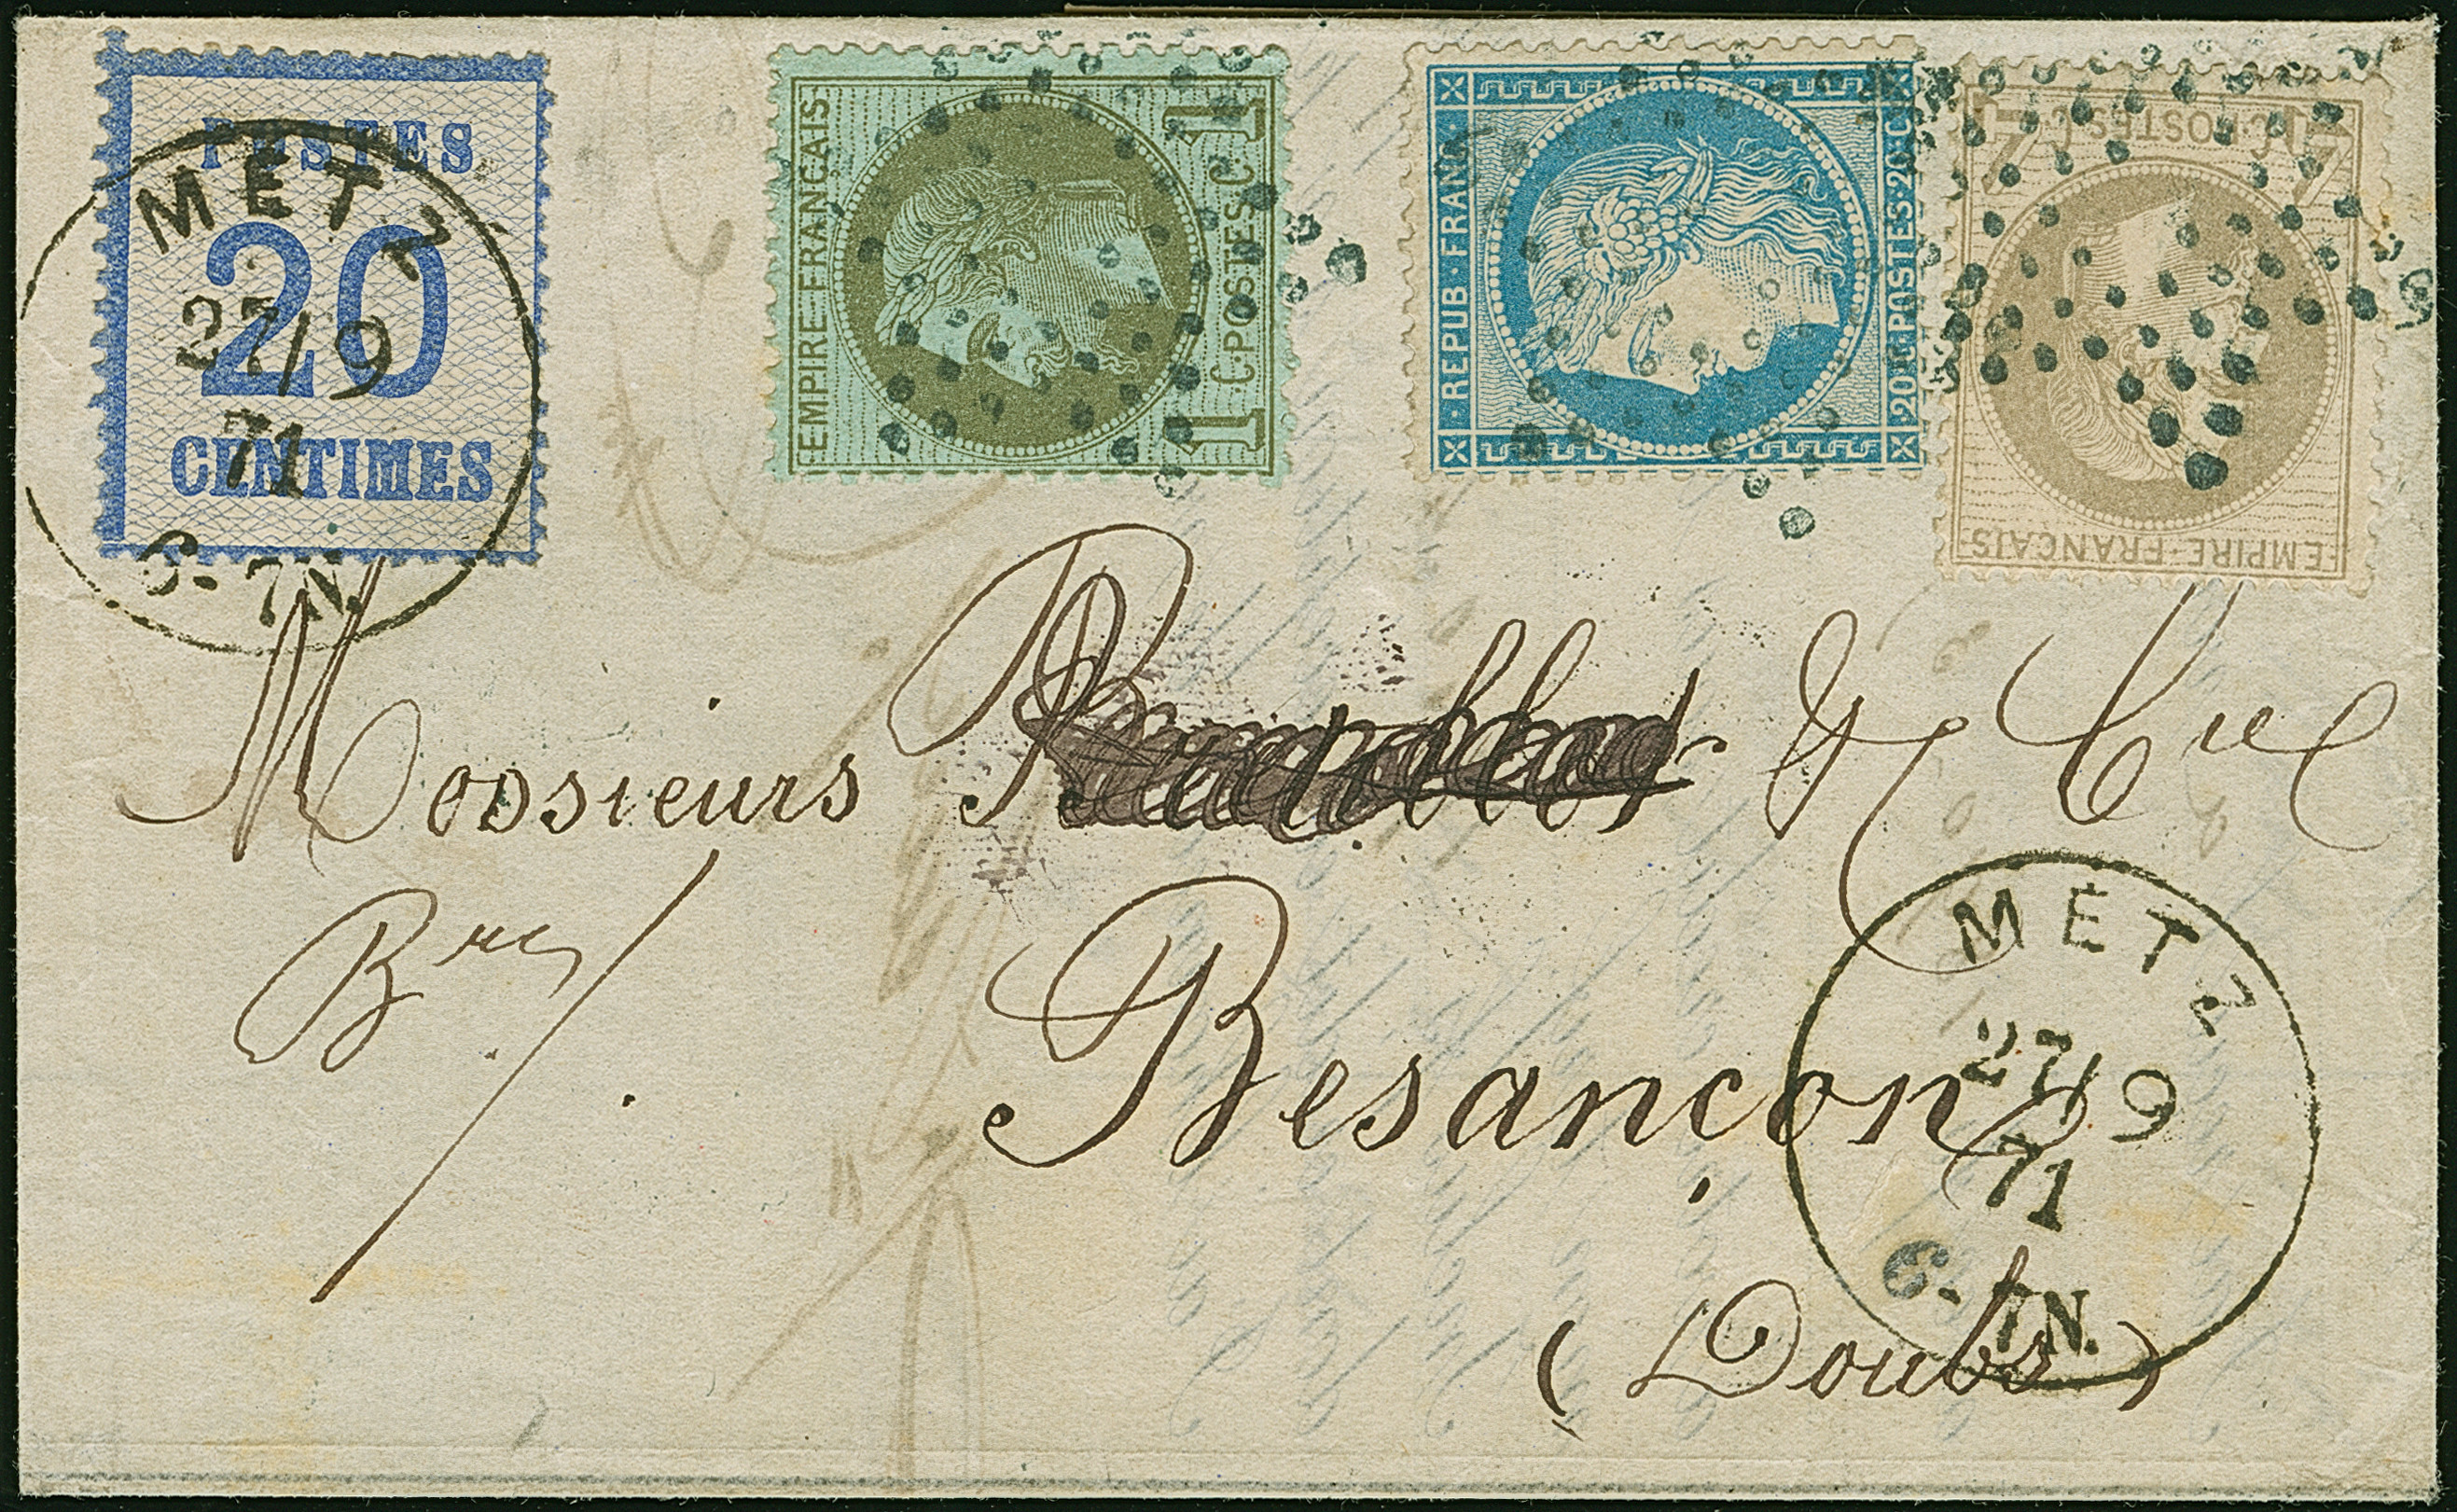 POSTES
20
CENTIMES
METZ
27/9
71
6-7N.
EMPIRE·FRANÇAIS
1 C·POSTES·C· 1
·REPUB·FRANC·
·20·C·POSTES·20·C·
4 C·POSTES·C 4
EMPIRE·FRANÇAIS
Messieurs & Cie
Besançon
(Doubs)
METZ
27/9
71
6-7N.